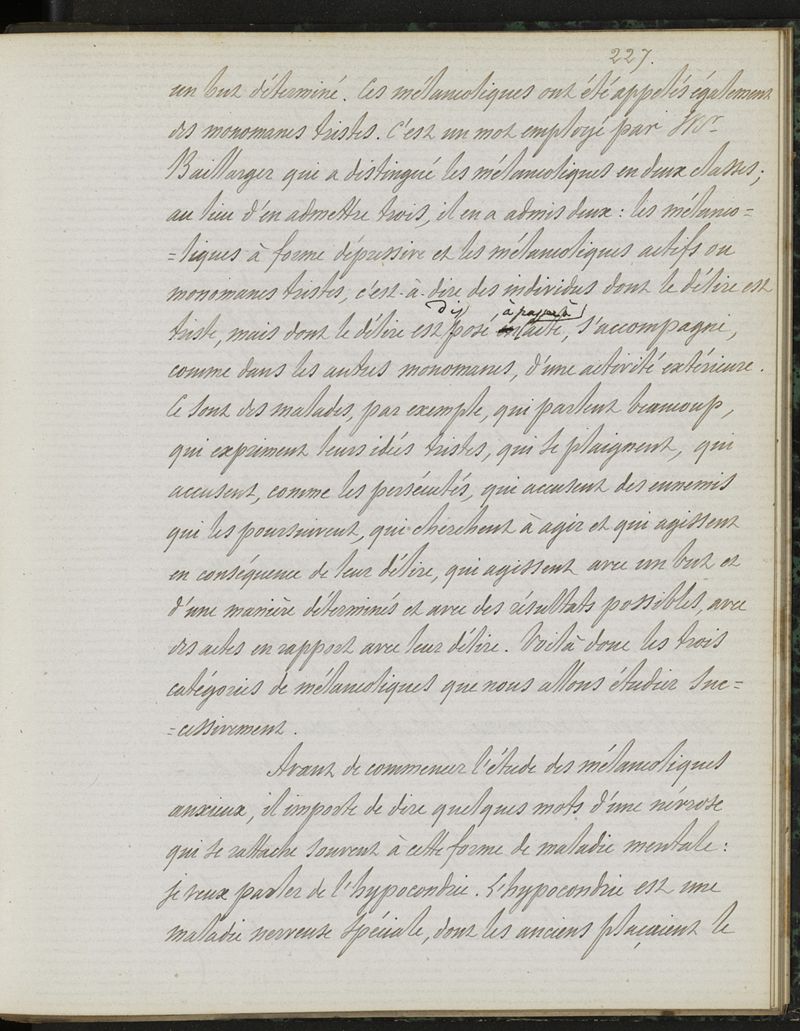 227.
un but déterminé. Ces mélancoliques ont été appelés également
des monomanes tristes. C'est un mot employé par Mr
Baillarger qui a distingué les mélancoliques en deux classes;
au lieu d'en admettre trois, il en a admis deux : les mélanco=
=liques à forme dépressive et les mélancoliques actifs ou
monomanes tristes, c'est-à-dire des individus dont le délire est
dis à
triste, mais dont le délire est posé s'accompagne,
comme dans les autres monomanes, d'une activité extérieure.
Ce sont des malades, par exemple, qui parlent beaucoup,
qui expriment leurs idées tristes, qui se plaignent, qui
accusent, comme les persécutés, qui accusent des ennemis
qui les poursuivent, qui cherchent à agir et qui agissent
en conséquence de leur délire, qui agissent avec un but et
d'une manière déterminés et avec des résultats possibles, avec
des actes en rapport avec leur délire. Voilà donc les trois
catégories de mélancoliques que nous allons étudier suc=
=cessivement.
Avant de commencer l'étude des mélancoliques
anxieux, il importe de dire quelques mots d'une névrose
qui se rattache souvent à cette forme de maladie mentale :
je veux parler de l'hypocondrie. L'hypocondrie est une
maladie nerveuse spéciale, dont les anciens plaçaient le